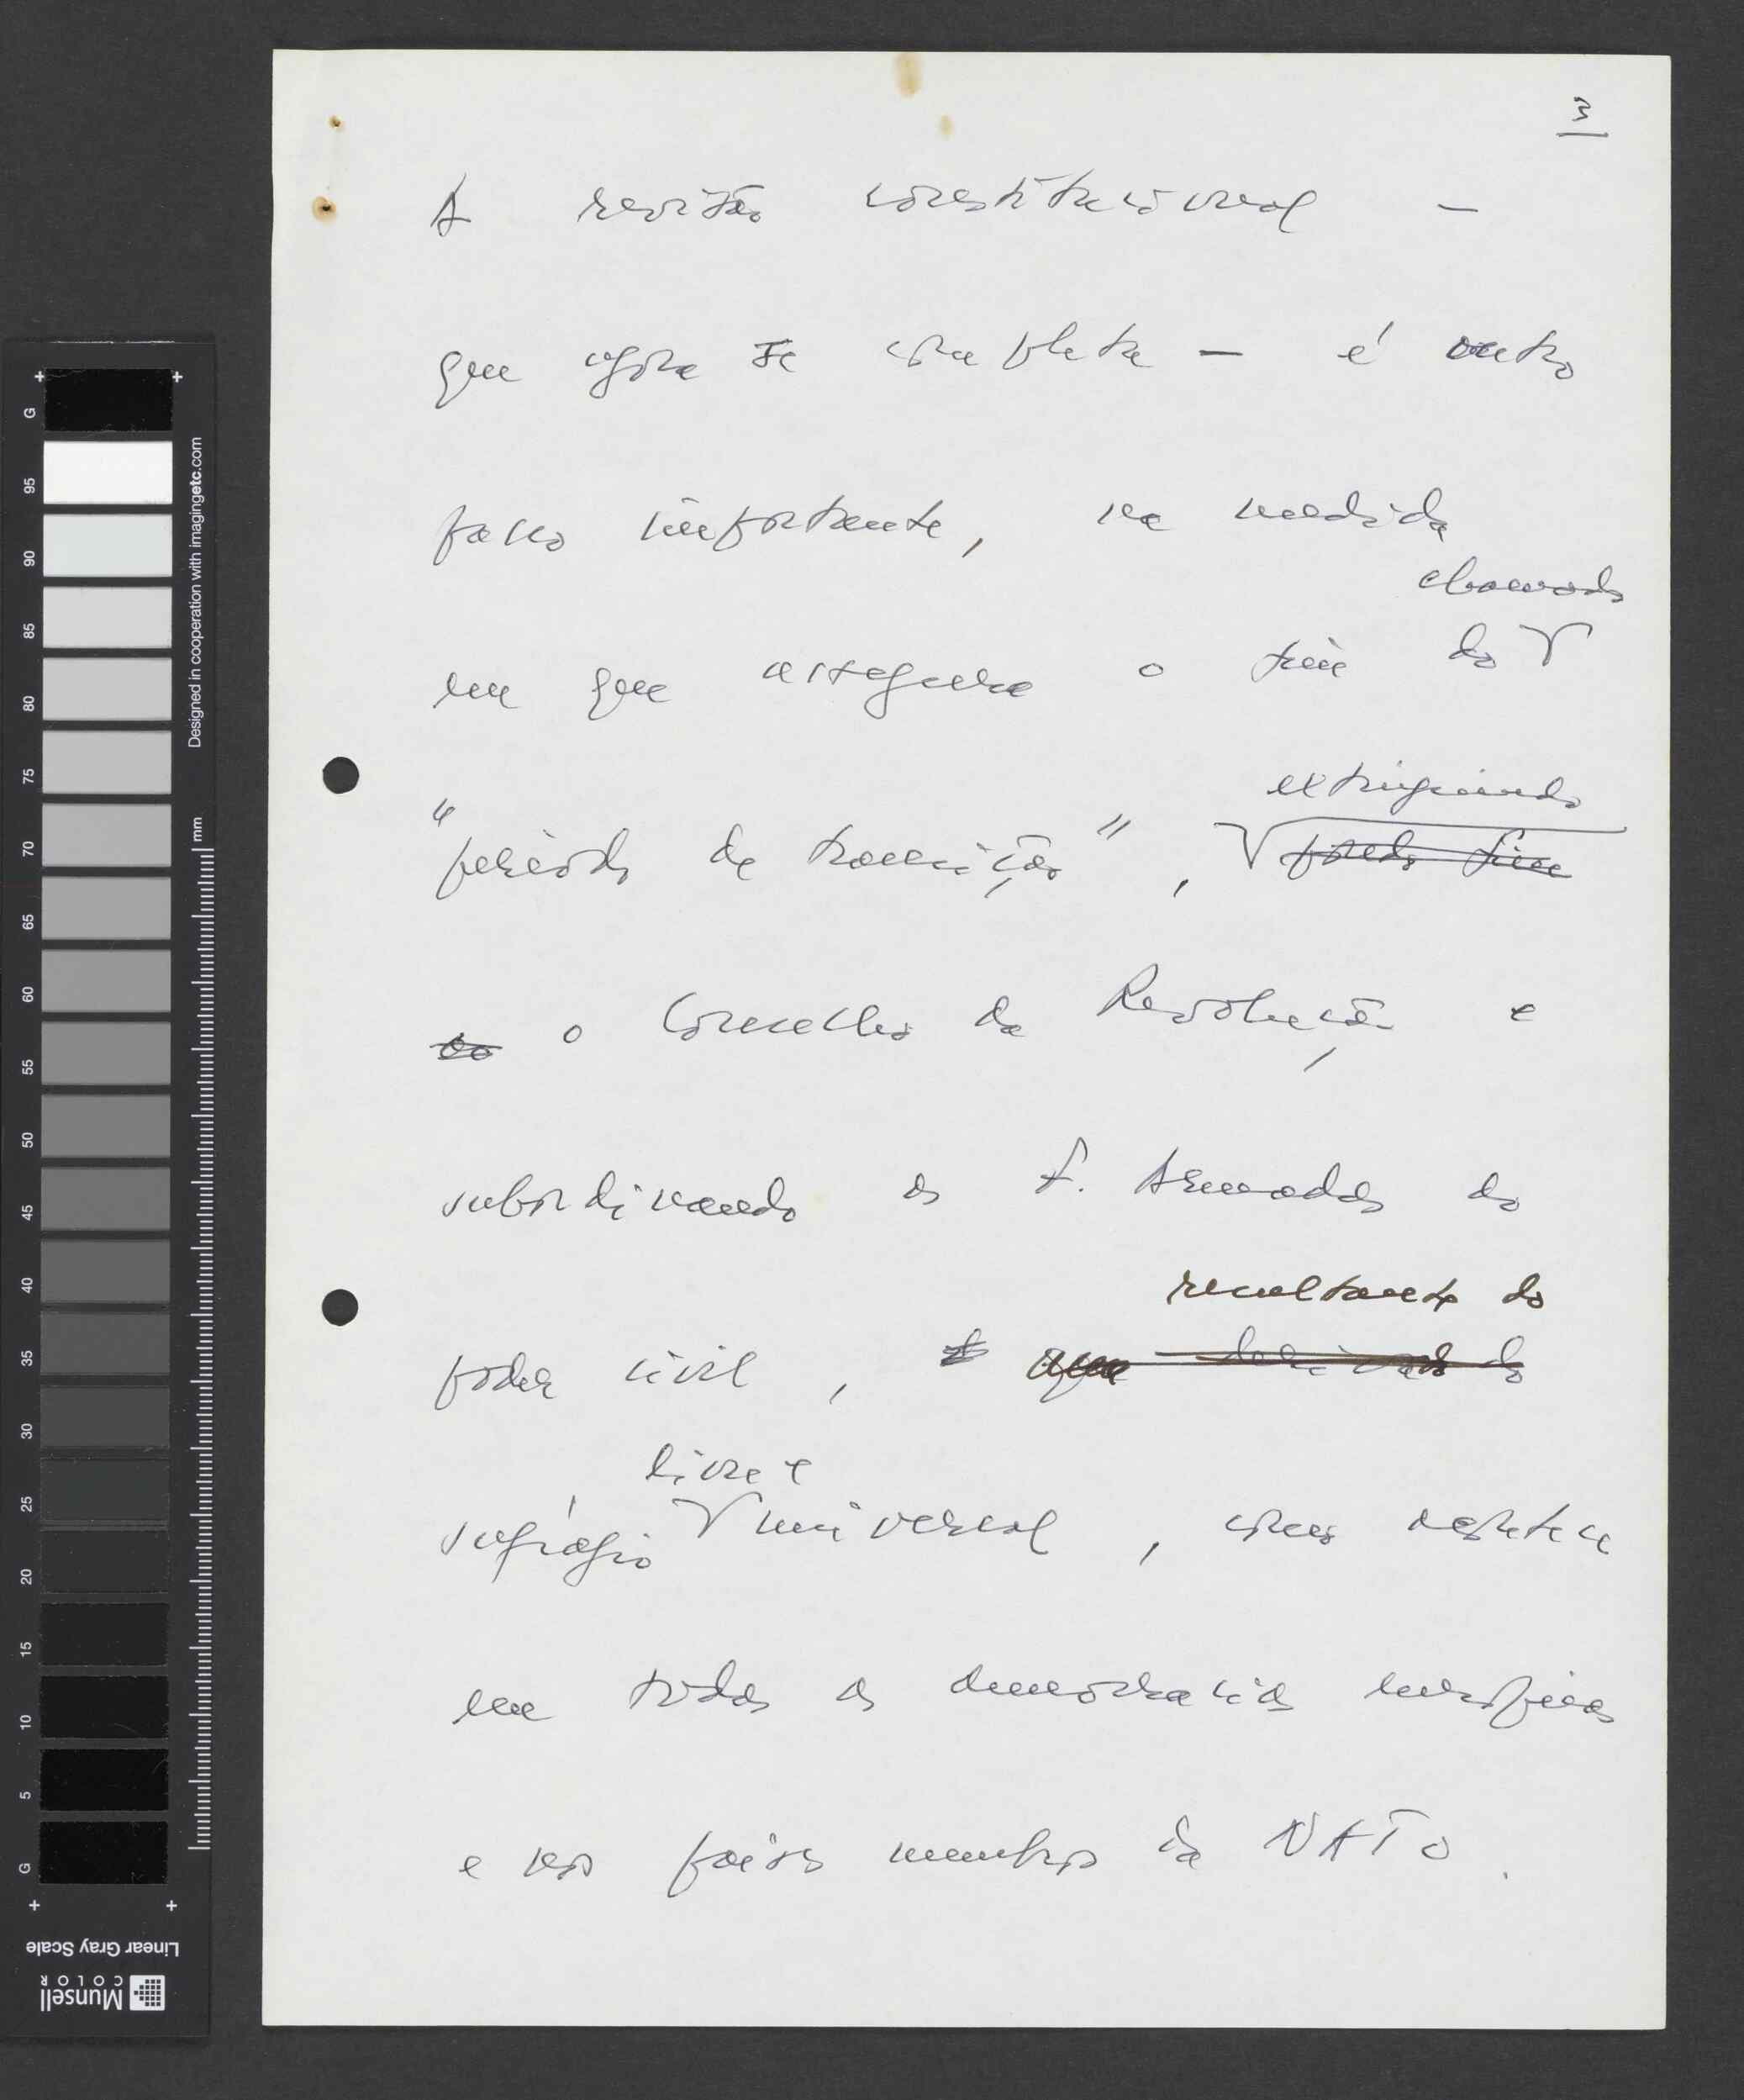 3
A revisão constitucional –
que agora se completa – é outro
passo importante, na medida
chamado
em que assegura o fim do
extinguindo
"período de transição", pondo fim
ao o Conselho da Revolução e
subordinando as F. Armadas ao
resultante do
poder civil, que derivado do
livre e
sufrágio universal, como acontece
em todas as democracias europeias
e nos países membros da NATO.
G
95
90
85
80
75
70
65
60
55
50
45
40
35
30
25
20
15
10
5
G
mm
Designed in cooperation with imagingetc.com
Linear Gray Scale
Munsell
COLOR